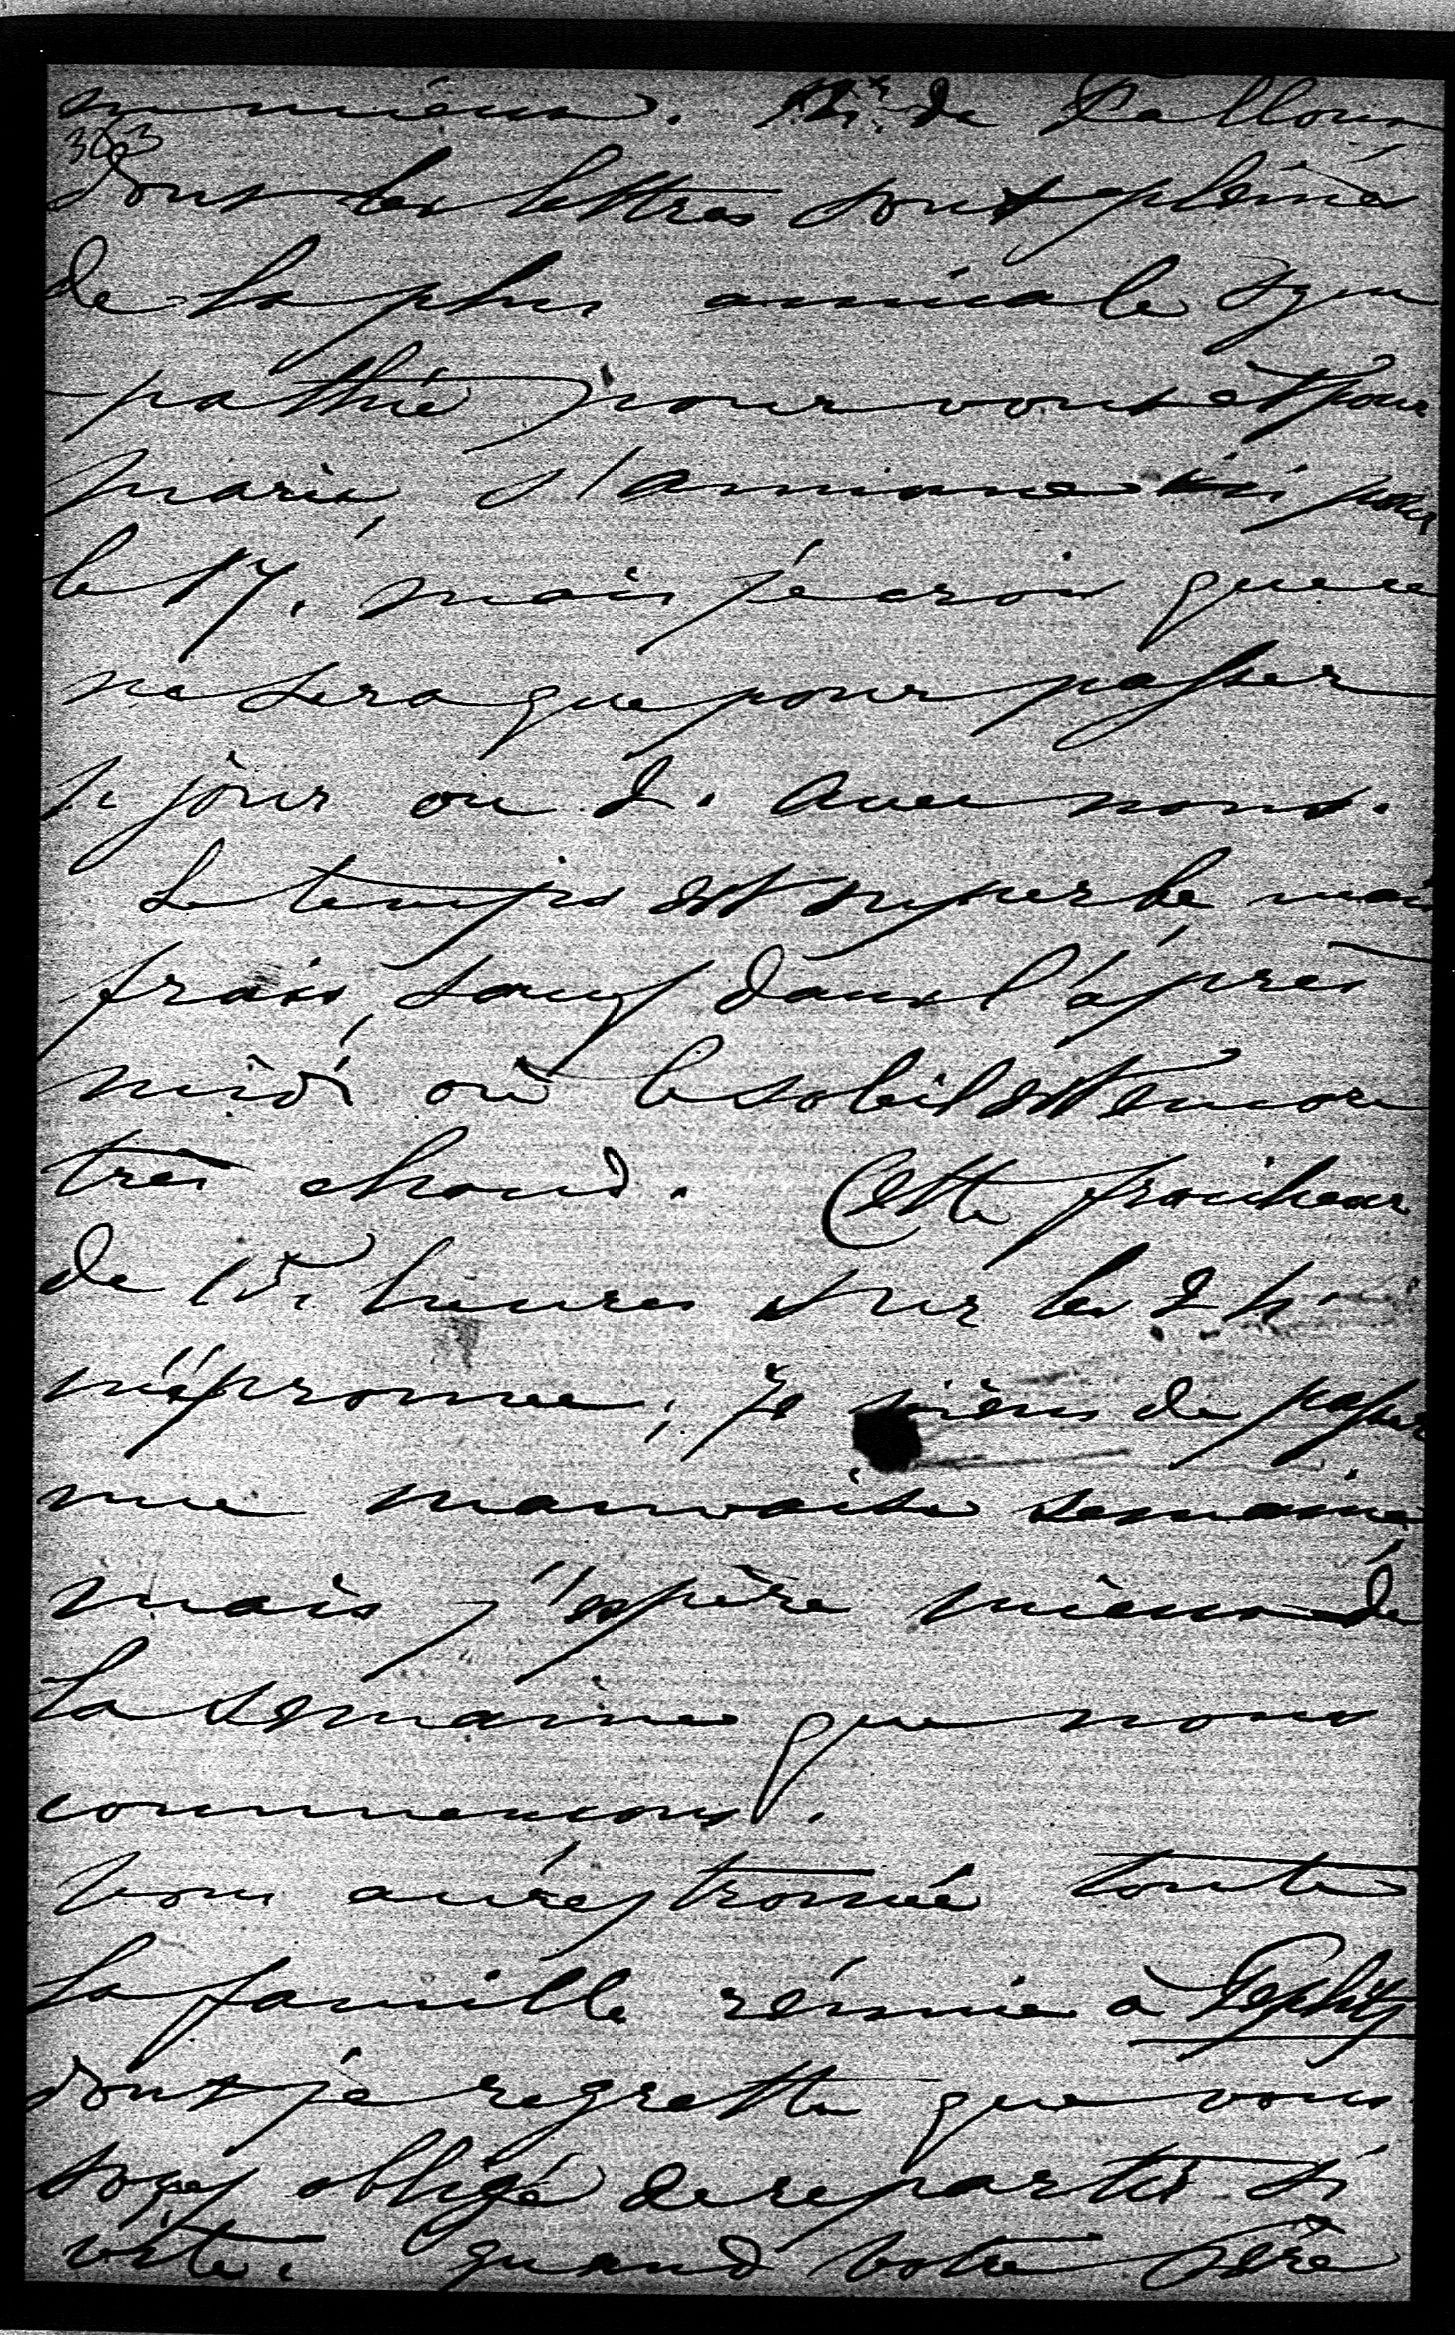 mieux. Mr. de Falloux
303
dont les lettres sont pleines
de la plus amicale sym
-pathie pour vous et pour
Marie, s'annonce ici pour
le 17, mais je crois que ce
ne sera que pour passer
1. jour ou 2. avec nous.
Le temps est superbe mais
frais, sauf dans l'après
midi où le soleil est encore
très chaud. Cette fraicheur
de 15. heures sur les 24
m'éprouve, Je viens de passer
une mauvaise semaine,
mais j'espère mieux de
la semaine que nous
commencons.
Vous aurez trouvé toute
la famille réunie à Teplitz
dont je regrette que vous
soyez obligé de repartir si
vite. quand votre Père